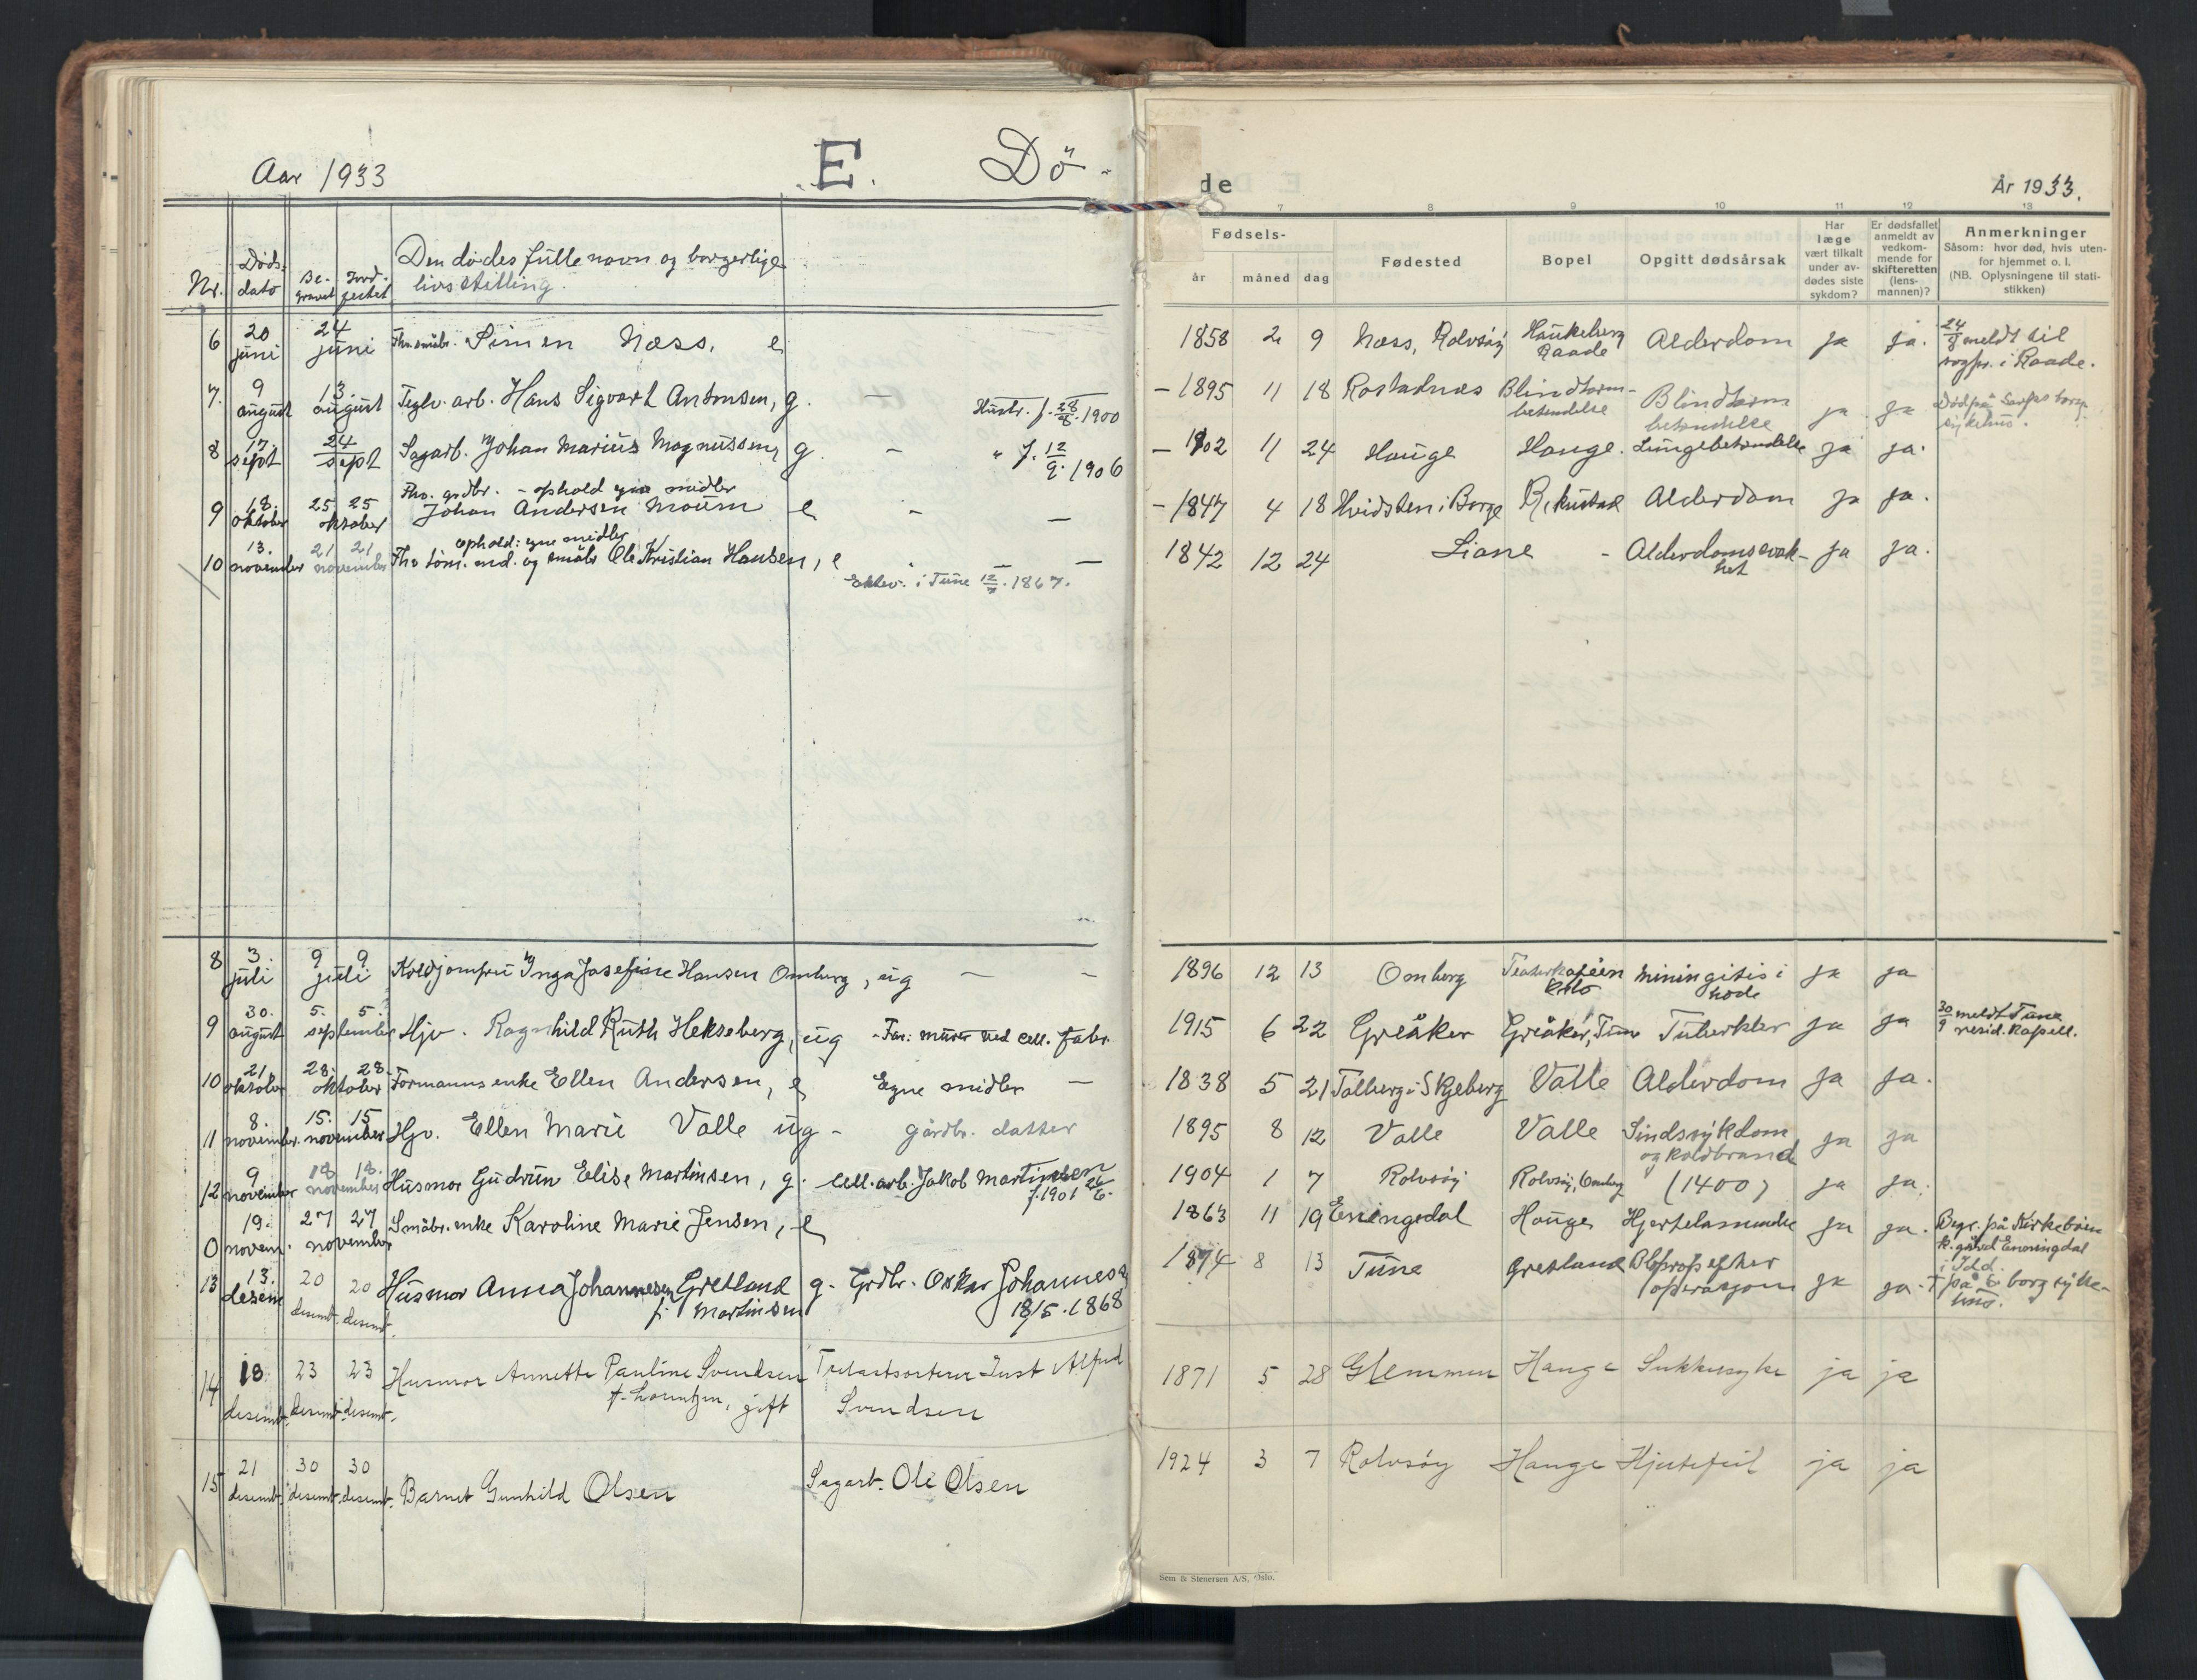 Aar 1933
E.
Dö-
de
År 1933.
7 8 9 10 11 12 13
Nr.
Döds-
dato
Be-
gravet
Jord-
festet
Den dödes fulle navn og borgerlige
livsstilling.
Fødsels-
år måned dag
Fødested
Bopel
Opgitt dødsårsak
Har
læge
vært tilkalt
under av-
dødes siste
sykdom?
Er dødsfallet
anmeldt av
vedkom-
mende for
skifteretten
(lens-
mannen)?
Anmerkninger
Såsom: hvor død, hvis uten-
for hjemmet o. l.
(NB. Oplysningene til stati-
stikken)
6 20 juni 24 juni Fhv. småbr. Simen Næss, e 1858 2 9 Næss, Rolvsöy Haukeberg Raade Alderdom ja ja. 24/8 meldt til
sogpr. i Raade.
7. 9 august 13. august Teglv. arb. Hans Sigvart Antonsen, g. — Hustr. f. 28/8. 1900 - 1895 11 18 Rostadnæs Blindtarm-
betendelse Blindtarm
betendelse ja ja Död på Sarpsborg
sykehus.
8 17. sept 24 sept Sagarb. Johan Marius Magnussen, g. — " f. 12/9. 1906 - 1902 11 24 Hauge Hauge. Lungebetendelse ja ja.
Fhv. grdbr. - ophold egne midler
9 18. oktober 25 25 oktober Johan Andersen Moum e - — - 1847 4 18 Hvidsten i Borge Rekustad Alderdom ja ja.
ophold: egne midler
10 13. november 21 21 november Fhv. töm. md. og småbr Ole Kristian Hansen, e - —
Ektev. i Tune 12/7. 1867.
1842 12 24 Liane - Alderdomssvak-
het ja ja.
8 3. juli 9 9 juli Koldjomfru Inga Josefine Hansen Omberg, ug — — 1896 12 13 Omberg Teaterkaféen
Oslo Miningitis i
hode ja ja
9 30. august 5. 5. september Hjv. Ragnhild Ruth Hekseberg, ug - Far: murer ved cell. fabr. 1915 6 22 Greåker Greåker, Tune Tuberkler ja ja 30/9 meldt Tune
resid. Kapell.
10 21. oktober 28. 28. oktober Formanns enke Ellen Andersen, e Egne midler — 1838 5 21 Talberg i Skjeberg Valle Alderdom ja ja.
11 8. november. 15. 15 november Hjv. Ellen Marie Valle ug - gårdbr. datter 1895 8 12 Valle Valle Sindssykdom
og koldbrand ja ja
12 9 november 18 18. november Husmor Gudrun Elise Martinsen, g. Cell. arb. Jakob Martinsen
f. 1901 26/6. 1904 1 7 Rolvsöy Rolvsöy, Omberg (1400) ja ja.
0 19. novem. 27 27 november Småbr. enke Karoline Marie Jensen, e 1863 11 19 Eningsdal Hauge Hjertelammelse ja ja. Begr. på Kirkeböen
k. gård Enningdal
i Idd.
13 13. desem 20 desemt. 20 desemt. Husmor Anna Johannesen Gretland
f. Martinsen g. Grdbr. Oskar Johannesen
18/5. 1868 1874 8 13 Tune Gretland Blprop efter
operasjon ja ja. † på S. borg syke-
hus.
14 18 desemt. 23 desemt. 23 desemt. Husmor Annette Pauline Svendsen
f. Lorentzen, gift Trelastsorterer Just Alfred
Svendsen 1871 5 28 Glemmen Hauge Sukkersyke ja ja
15 21 desemt. 30 desemt. 30 desemt. Barnet Gunhild Olsen Sagarb. Ole Olsen 1924 3 7 Rolvsöy Hauge Hjertefeil ja ja
Sem & Stenersen A/S, Oslo.